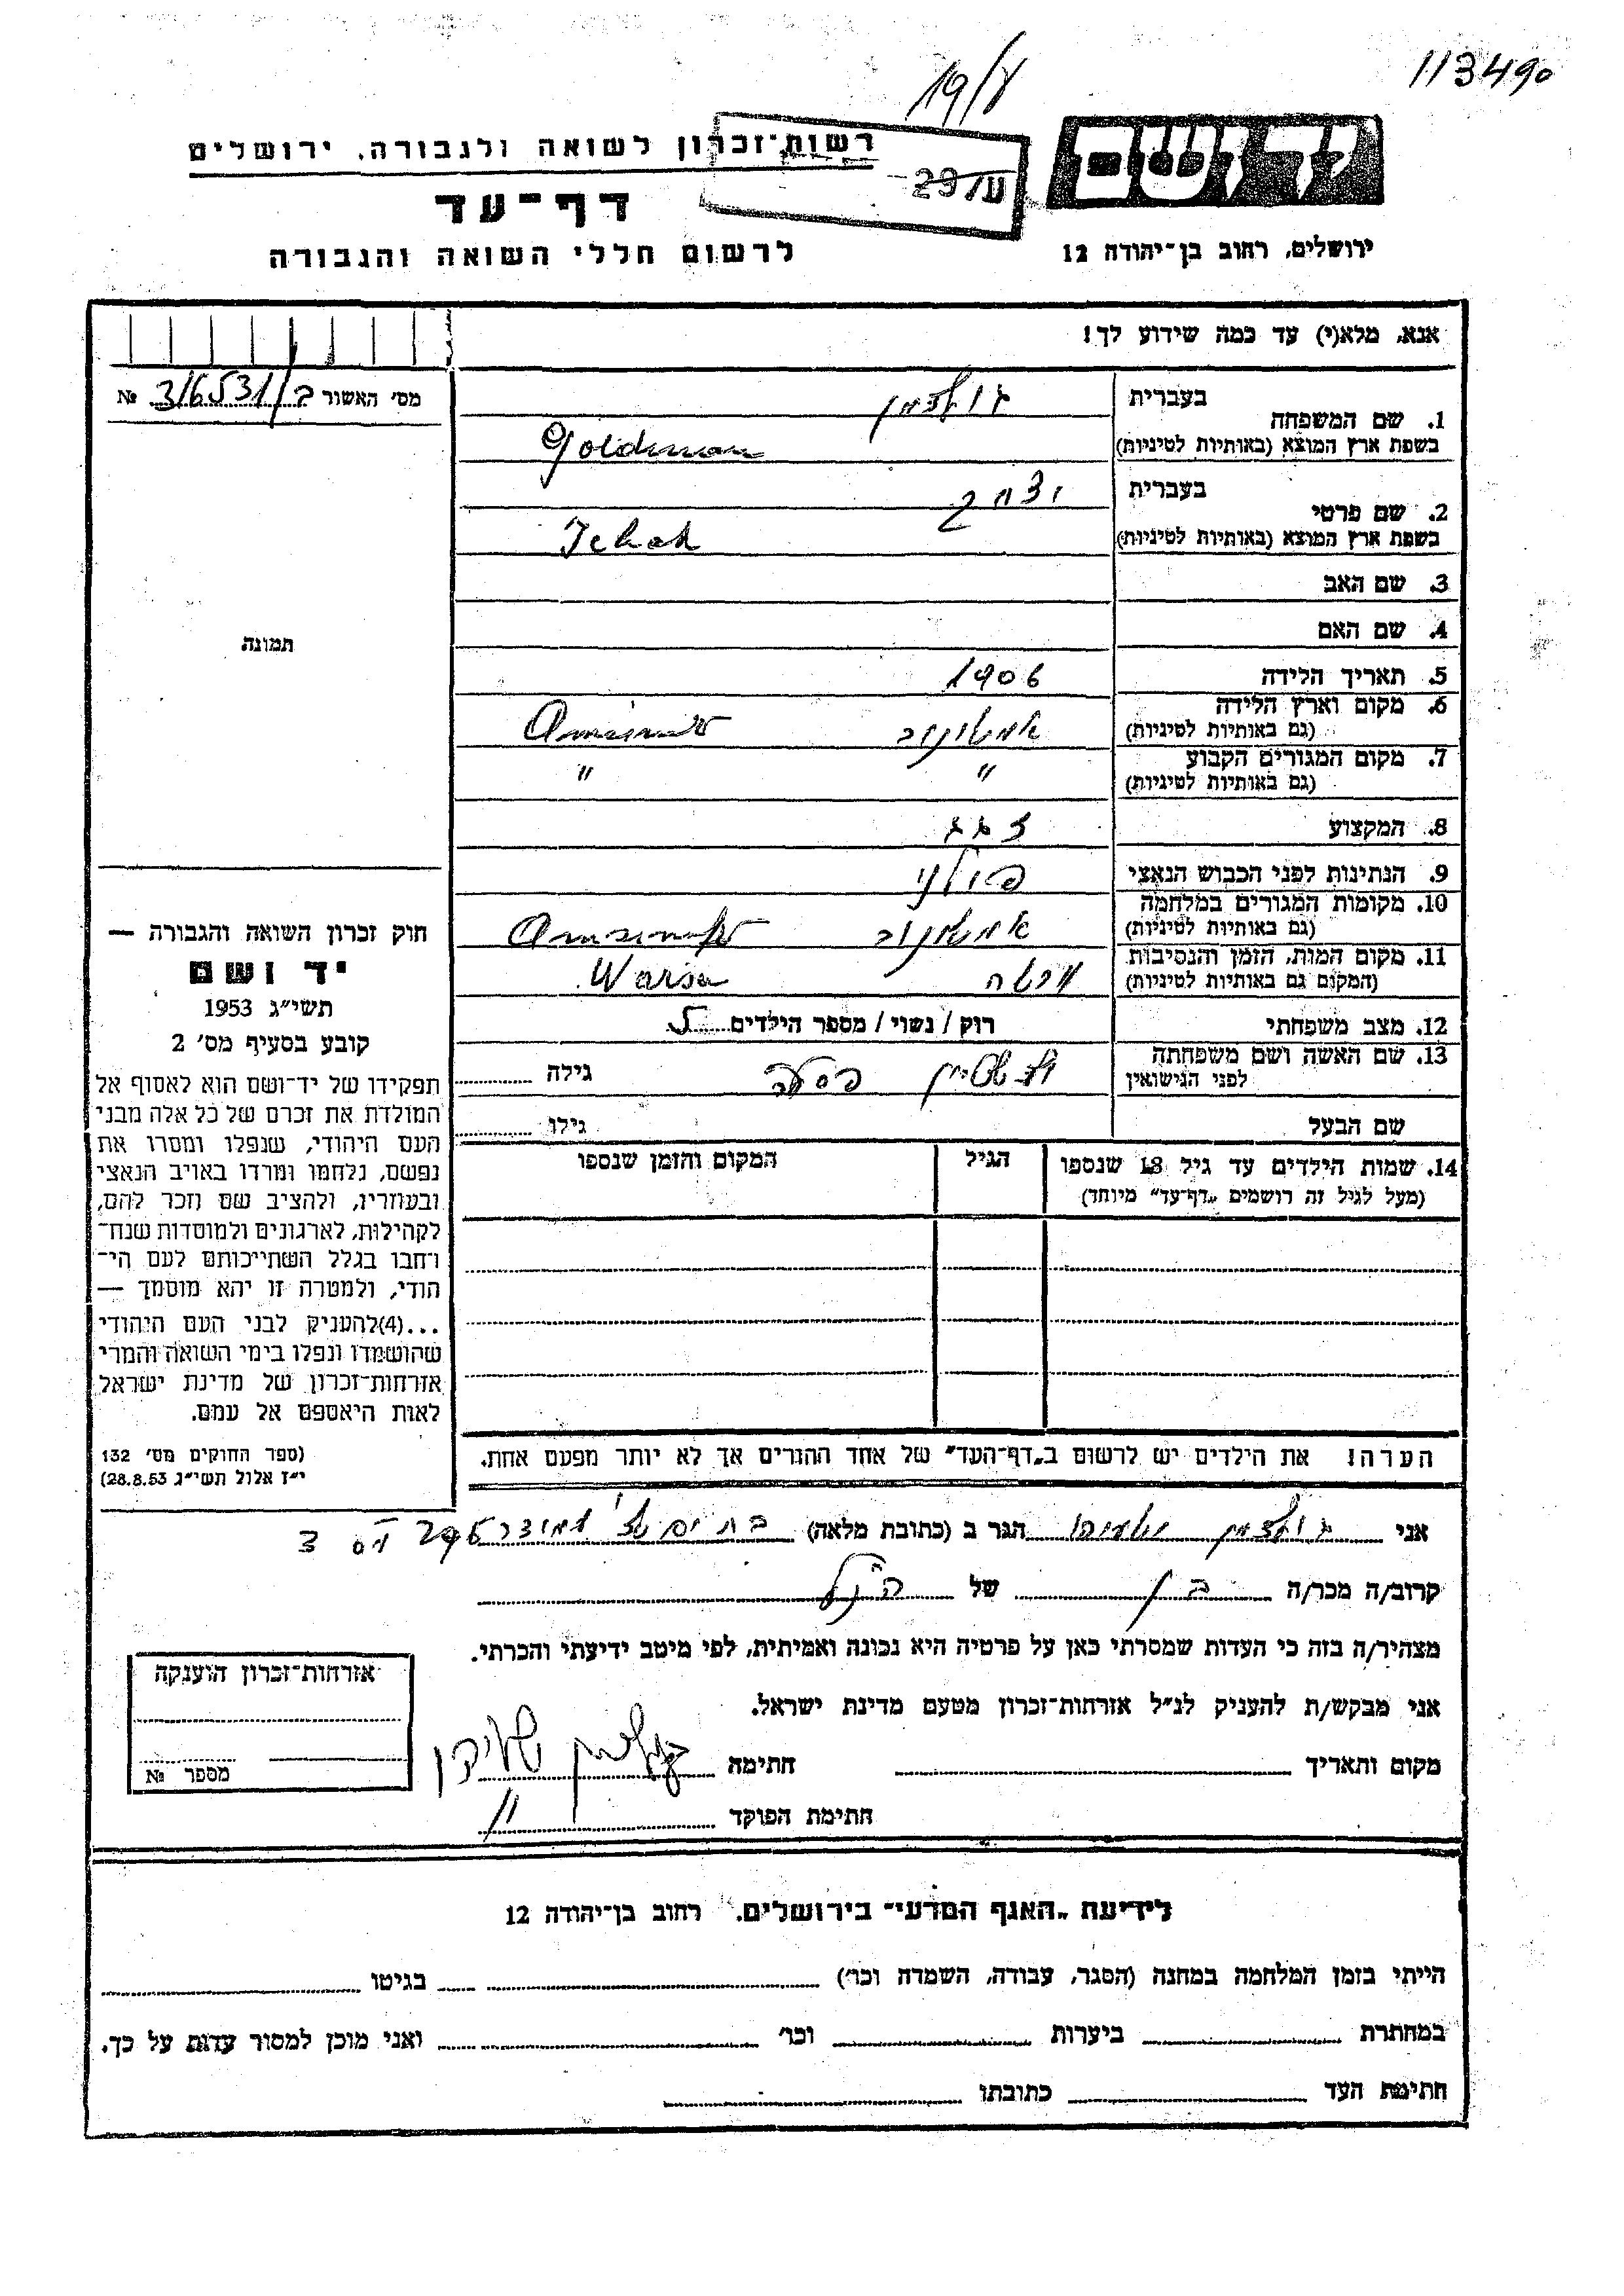 113490
19/7
יד ושם
רשות־זכרון לשואה ולגבורה, ירושלים
דף־עד
לרשום חללי השואה והגבורה
ירושלים, רחוב בן־יהודה 12
אנא, מלא(י) עד כמה שידוע לך!
מס' האשור
№ 316531/ב
1. שם המשפחה
בעברית
גולדמן
בשפת ארץ המוצא (באותיות לטיניות)
Goldman
2. שם פרטי
בעברית
יצחק
בשפת ארץ המוצא (באותיות לטיניות)
Ichak
3. שם האב
4. שם האם
תמונה
5. תאריך הלידה
1906
6. מקום וארץ הלידה
(גם באותיות לטיניות)
אמשינוב
7. מקום המגורים הקבוע
(גם באותיות לטיניות)
" "
8. המקצוע
9. הנתינות לפני הכבוש הנאצי
פולני
10. מקומות המגורים במלחמה
(גם באותיות לטיניות)
אמשינוב
11. מקום המות, הזמן והנסיבות
(המקום גם באותיות לטיניות)
ורשה Warsa
12. מצב משפחתי
רוק / נשוי / מספר הילדים 5
13. שם האשה ושם משפחתה
לפני הנישואין
גילה
שם הבעל
גילו
14. שמות הילדים עד גיל 18 שנספו
(מעל לגיל זה רושמים „דף־עד" מיוחד)
הגיל
המקום והזמן שנספו
חוק זכרון השואה והגבורה —
יד ושם
תשי"ג 1953
קובע בסעיף מס' 2
תפקידו של יד־ושם הוא לאסוף אל
המולדת את זכרם של כל אלה מבני
העם היהודי, שנפלו ומסרו את
נפשם, נלחמו ומרדו באויב הנאצי
ובעוזריו, ולהציב שם וזכר להם,
לקהילות, לארגונים ולמוסדות שנח־
רחבו בגלל השתייכותם לעם הי־
הודי, ולמטרה זו יהא מוסמך —
...(4)להעניק לבני העם היהודי
שהושמדו ונפלו בימי השואה והמרי
אזרחות־זכרון של מדינת ישראל
לאות היאספם אל עמם.
(ספר החוקים מס' 132
י"ז אלול תשי"ג 28.8.53)
הערה! את הילדים יש לרשום ב„דף־העד" של אחד ההורים אך לא יותר מפעם אחת.
אני גולדמן ישעיהו הגר ב (כתובת מלאה) בת ים 3
קרוב/ה מכר/ה בן של הנ"ל
מצהיר/ה בזה כי העדות שמסרתי כאן על פרטיה היא נכונה ואמיתית, לפי מיטב ידיעתי והכרתי.
אני מבקש/ת להעניק לנ"ל אזרחות־זכרון מטעם מדינת ישראל.
מקום ותאריך חתימה
חתימת הפוקד
אזרחות־זכרון הוענקה
מספר №
לידיעת „האגף המדעי" בירושלים, רחוב בן־יהודה 12
הייתי בזמן המלחמה במחנה (הסגר, עבודה, השמדה וכו') בגיטו
במחתרת ביערות וכו' ואני מוכן למסור עדות על כך.
חתימת העד כתובתו